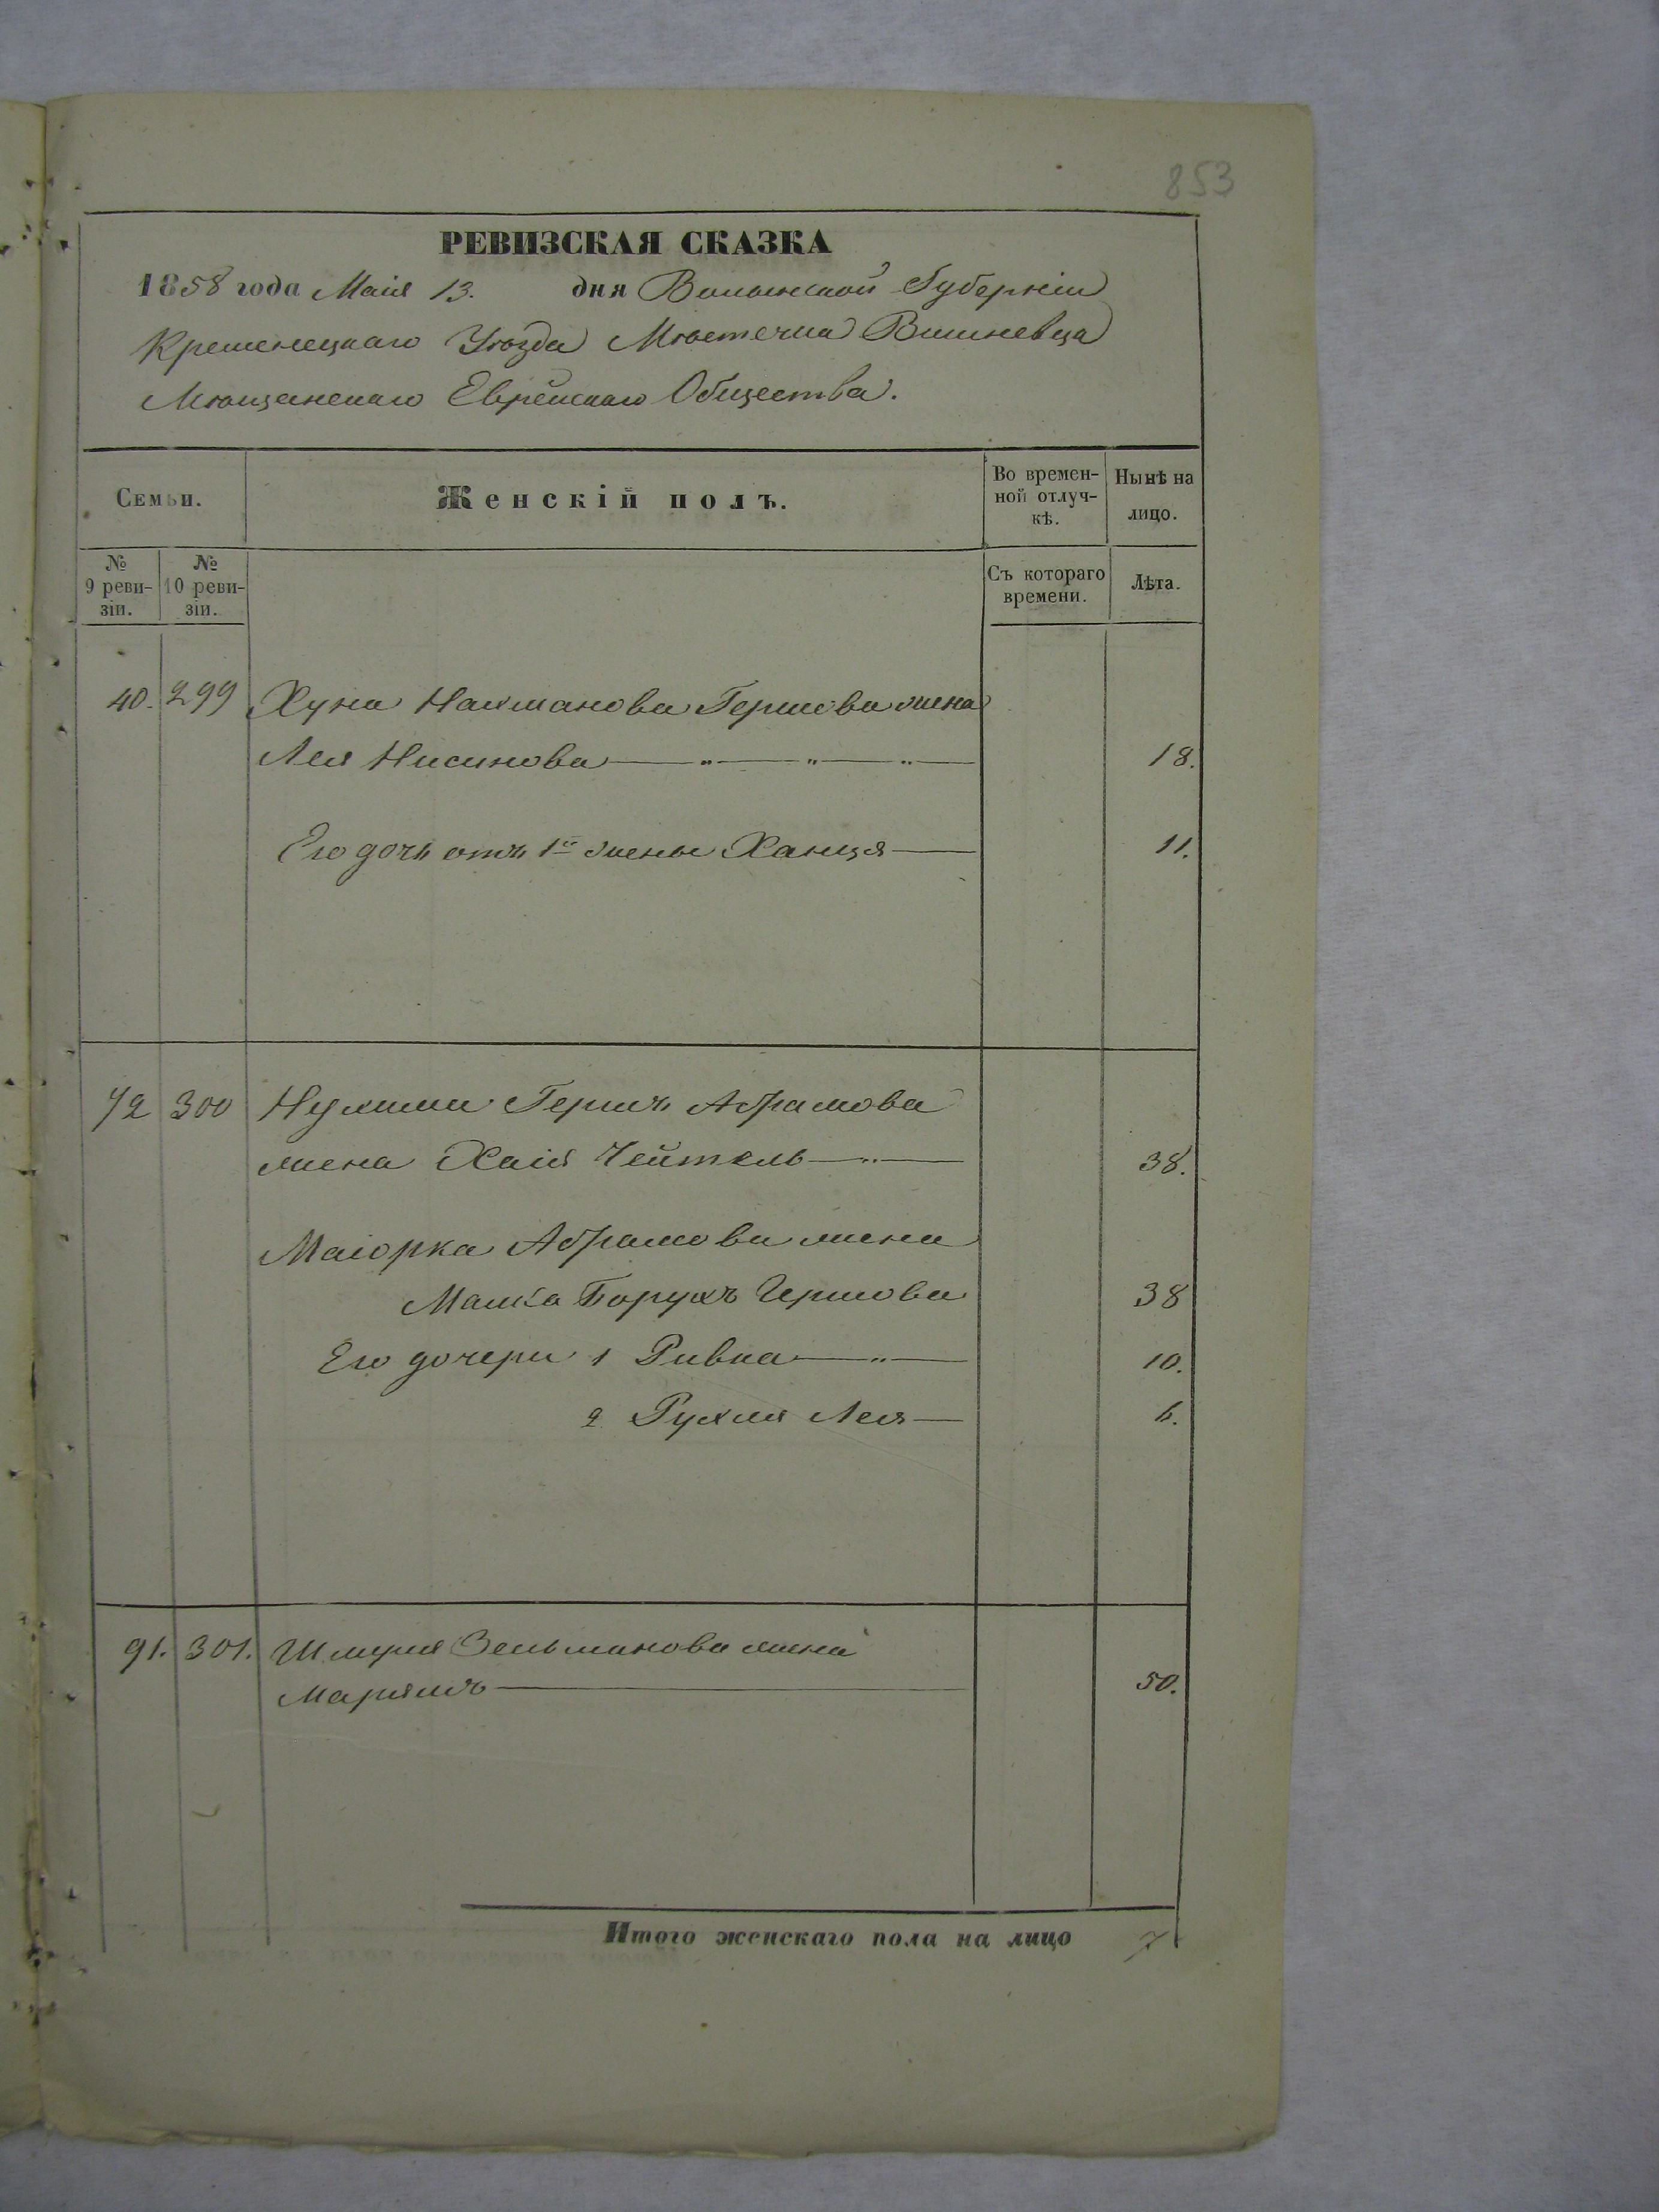 853
РЕВИЗСКАЯ СКАЗКА
1858 года Маія 13. дня Волынской Губерніи
Кременецкаго Уѣзда Мѣстечка Вишневца
Мѣщанскаго Еврейскаго Общества.
Семьи.
Женскій полъ.
Во времен-
ной отлуч-
кѣ.
Нынѣ на
лицо.
№
9 реви-
зіи.
№
10 реви-
зіи.
Съ котораго
времени.
Лѣта.
40. 299 Хуна Нахманова Гершова жена
Лея Нисинова 18.
Его дочь отъ 1й жены Ханця 11.
72 300 Нухима Гершъ Абрамова
жена Хаія Чейтель 38.
Маіорка Абрамова жена
Малка Борухъ Гершова 38
Его дочери 1 Ривка 10.
2 Рухля Лея 6.
91. 301. Шмуля Зельманова жена
Марямъ 50.
Итого женскаго пола на лицо 7